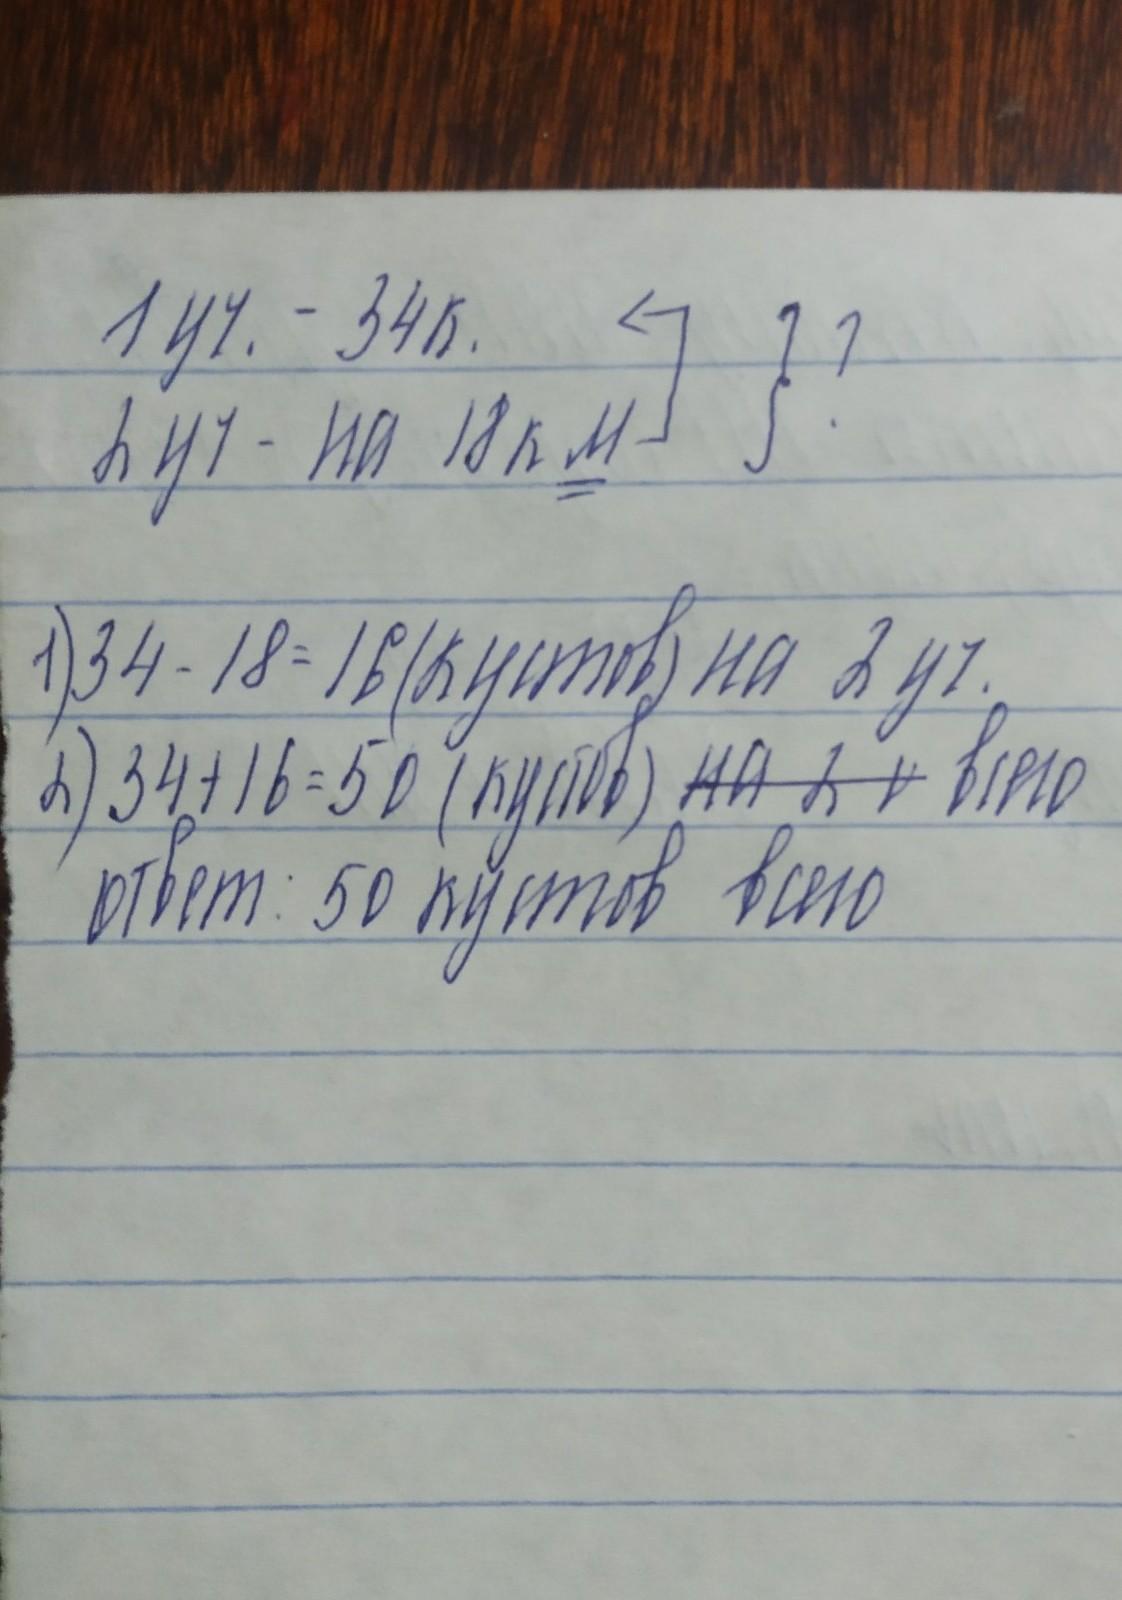 1 уч. - 34к.
2 уч - на 18к м } ?
1) 34 - 18 = 16 (кустов) на 2 уч.
2) 34 + 16 = 50 (кустов) на 2 у всего
ответ: 50 кустов всего